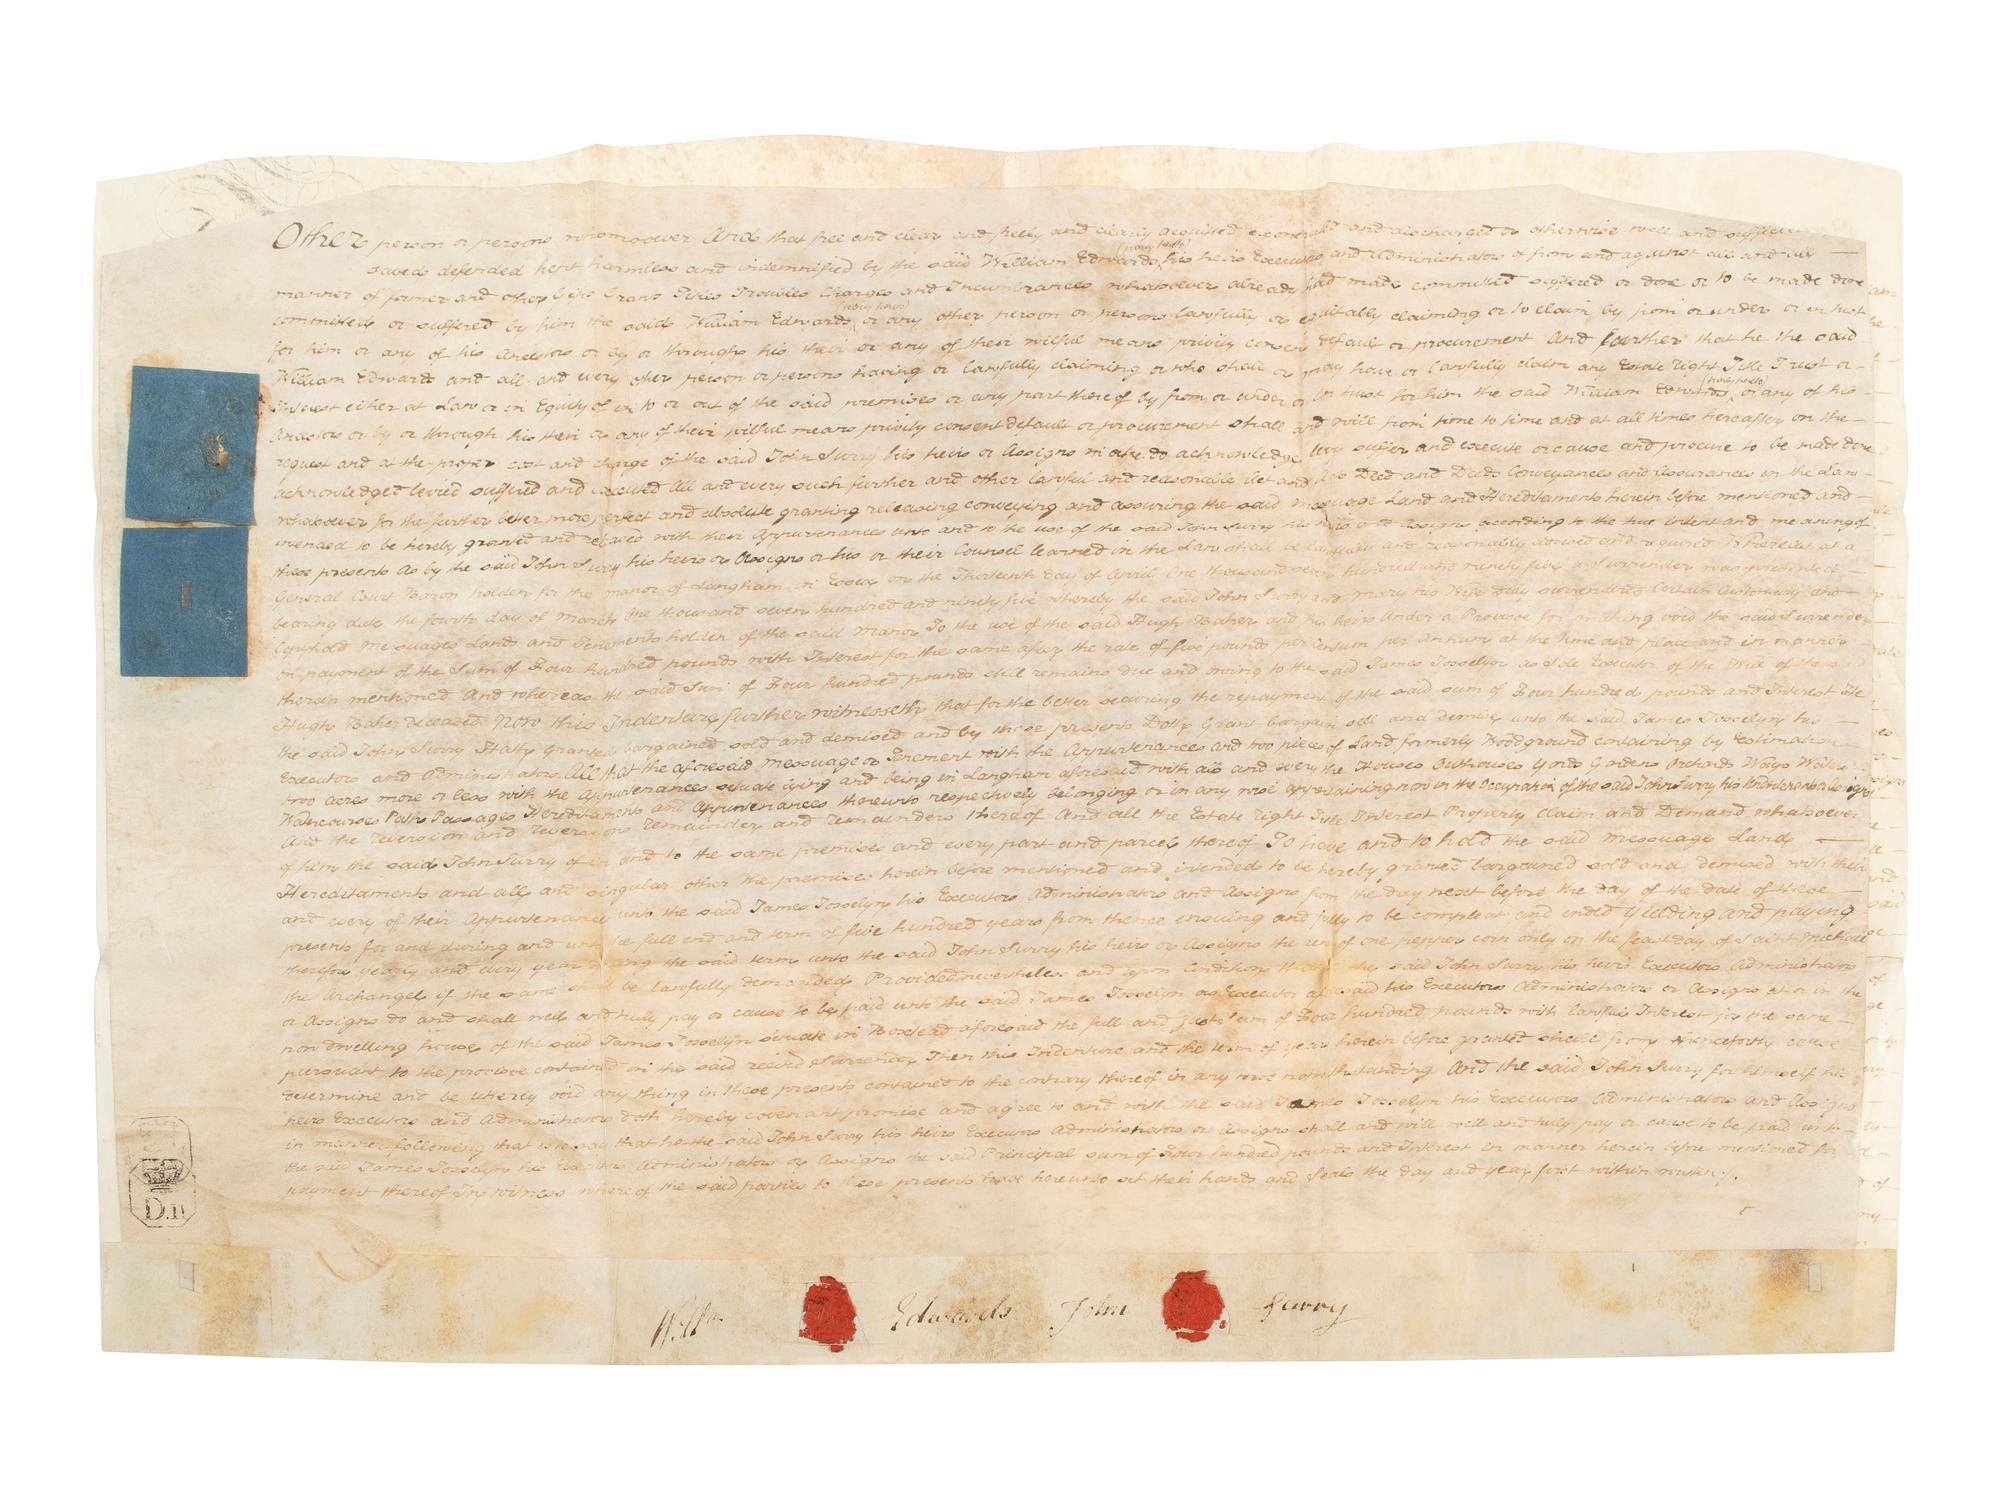 Other person or persons whomsoever And that free and clear and freely and clearly acquitted exonerated and discharged or otherwise well and sufficiently
saved defended kept harmless and indemnified by the said William Edwards his heirs Executors and Administrators of from and against all and all
manner of former and other Gifts Grants Titles Troubles Charges and Incumbrances whatsoever already had made committed suffered or done or to be made done
committed or suffered by him the said William Edwards or any other person or persons lawfully or equitably claiming or to claim by from or under or in trust
for him or any of his Ancestors or by or through his their or any of their wilful means privity consent default or procurement And further that he the said
William Edwards and all and every other person or persons having or lawfully claiming or who shall or may have or lawfully claim any Estate right Title Trust or
Interest either at Law or in Equity of in to or out of the said premises or any part thereof by from or under or in trust for him the said William Edwards or any of his
Ancestors or by or through his their or any of their wilful means privity consent default or procurement shall and will from time to time and at all times hereafter on the
request and at the proper cost and charge of the said John Surry his heirs or Assigns make do acknowledge levy suffer and execute or cause and procure to be made done
acknowledged levied suffered and executed All and every such further and other lawful and reasonable Act and Acts Deed and Deeds Conveyances and Assurances in the Law
whatsoever for the further better more perfect and absolute granting releasing conveying and assuring the said messuage Land and Hereditaments herein before mentioned and
intended to be hereby granted and released with their Appurtenances unto and to the use of the said John Surry his heirs and Assigns according to the true intent and meaning of
these presents As by the said John Surry his heirs or Assigns or his or their Counsel learned in the Law shall be lawfully and reasonably advised and required Whereas at a
General Court Baron holden for the manor of Langham in Essex on the Thirteenth day of April One thousand seven hundred and ninety five a Surrender was presented
bearing date the fourth day of March One thousand seven hundred and ninety five whereby the said John Surry and Mary his Wife duly surrendered Certain Customary and
Copyhold Messuages Lands and Tenements holden of the said Manor To the use of the said Hugh Baker and his heirs Under a Proviso for making void the said Surrender
on payment of the Sum of Four hundred pounds with Interest for the same after the rate of five pounds per Centum per Annum at the time and place and in manner
therein mentioned And whereas the said Sum of Four hundred pounds still remains due and owing to the said James Josselyn as Sole Executor of the Will of the said
Hugh Baker deceased Now this Indenture further witnesseth that for the better securing the repayment of the said sum of Four hundred pounds and Interest He
the said John Surry Hath granted bargained sold and demised and by these presents Doth Grant bargain sell and demise unto the said James Josselyn his
Executors and Administrators All that the aforesaid Messuage or Tenement with the Appurtenances and two pieces of Land formerly Woodground containing by Estimation
two acres more or less with the Appurtenances situate lying and being in Langham aforesaid with all and every the Houses Outhouses Yards Gardens Orchards Ways Waters
Watercourses Paths Passages Hereditaments and Appurtenances thereunto respectively belonging or in any wise appertaining now in the Occupation of the said John Surry his Undertenants or Assigns
And the reversion and reversions remainder and remainders thereof And all the Estate right Title Interest Property Claim and Demand whatsoever
of him the said John Surry of in and to the same premises and every part and parcel thereof To have and to hold the said messuage Land
Hereditaments and all and singular other the premises herein before mentioned and intended to be hereby granted bargained sold and demised with their
and every of their Appurtenances unto the said James Josselyn his Executors Administrators and Assigns from the day next before the day of the date of these
presents for and during and unto the full end and term of five hundred years from thence ensuing and fully to be compleat and ended Yielding and paying
therefor yearly and every year during the said term unto the said John Surry his heirs or Assigns the rent of one pepper corn only on the feast day of Saint Michael
the Archangel if the same shall be lawfully demanded Provided nevertheless and upon Condition that if the said John Surry his heirs Executors Administrators
or Assigns do and shall well and truly pay or cause to be paid unto the said James Josselyn as Executor aforesaid his Executors Administrators or Assigns at or in the
now dwelling house of the said James Josselyn situate in Boxted aforesaid the full and just sum of Four hundred pounds with lawful Interest for the same
pursuant to the provisoe contained in the said recited Surrender Then this Indenture and the term of years herein before granted shall from henceforth cease
determine and be utterly void any thing in these presents contained to the contrary thereof in any wise notwithstanding And the said John Surry for himself his
heirs Executors and Administrators doth hereby covenant promise and agree to and with the said James Josselyn his Executors Administrators and Assigns
in manner following that is to say that he the said John Surry his heirs Executors Administrators or Assigns shall and will well and truly pay or cause to be paid unto
the said James Josselyn his Executors Administrators or Assigns the said Principal sum of Four hundred pounds and Interest in manner herein before mentioned for
payment thereof In witness whereof the said parties to these presents have hereunto set their hands and Seals the day and year first within written
D.II
Willm Edwards John Surry